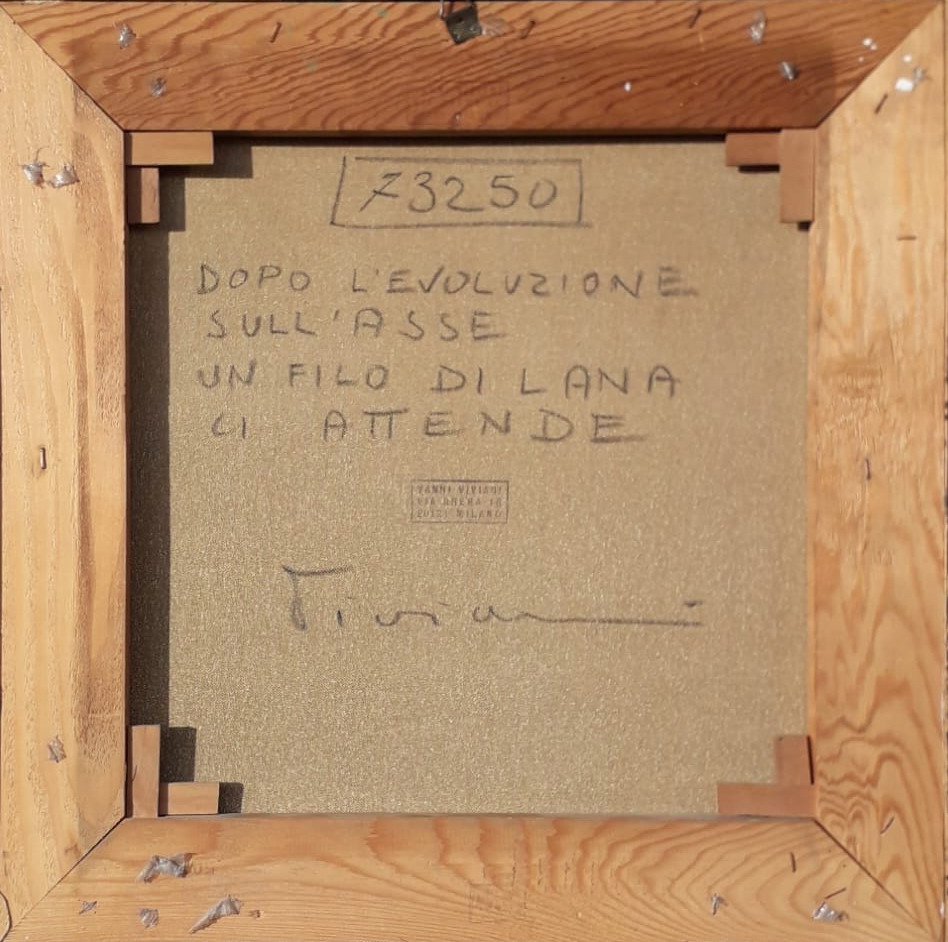 73250
DOPO L'EVOLUZIONE
SULL'ASSE
UN FILO DI LANA
CI ATTENDE
VANNI VIVIANI
VIA BRERA 16
20121 MILANO
Viviani